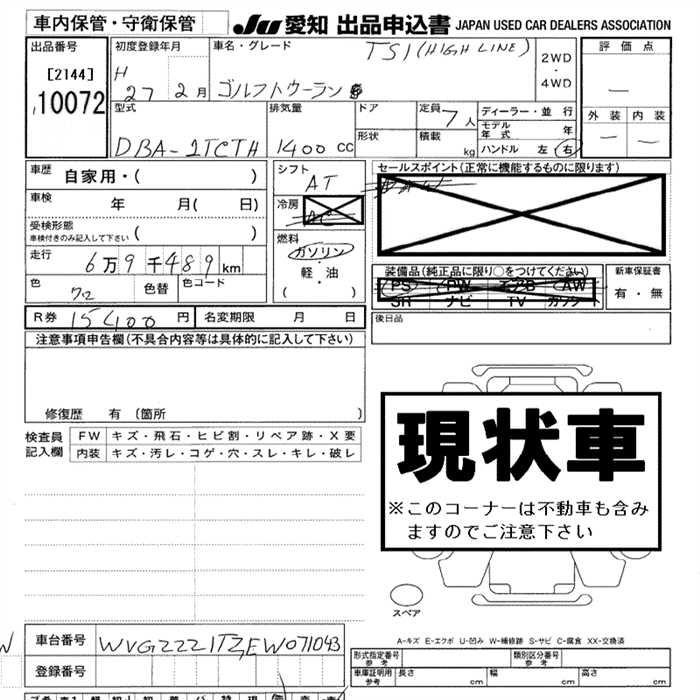 車内保管・守衛保管
JU 愛知 出品申込書 JAPAN USED CAR DEALERS ASSOCIATION
出品番号
[2144]
10072
初度登録年月
H 27 2月
車名・グレード
TSI (HIGH LINE)
ゴルフトウーラン
2WD
・
4WD
評価点
—
外装 内装
— —
型式
DBA-1TCTH
排気量
1400 CC
ドア
形状
定員 7人
積載 kg
ディーラー・並行
モデル年式 年
ハンドル 左 右
車歴 自家用・( )
車検 年 月( 日)
受検形態
車検付きのみ記入して下さい ( )
走行 6万9千489km
色 色替 色コード
シフト
AT
冷房
AC
燃料
ガソリン
・
軽・油
( )
セールスポイント(正常に機能するものに限ります)
装備品(純正品に限り○をつけてください)
PS PW エアB AW
SR ナビ TV カセット
新車保証書
有・無
R券 15400円 名変期限 月 日
後日品
注意事項申告欄(不具合内容等は具体的に記入して下さい)
修復歴 有 (箇所 )
検査員記入欄
FW キズ・飛石・ヒビ割・リペア跡・X要
内装 キズ・汚レ・コゲ・穴・スレ・キレ・破レ
現状車
※このコーナーは不動車も含み
ますのでご注意下さい
スペア
A-キズ E-エクボ U-凹み W-補修跡 S-サビ C-腐食 XX-交換済
車台番号 WVGZZZ1TZEW071043
登録番号
形式指定番号 参考
類別区分番号 参考
車庫証明用 参考 長さ cm 幅 cm 高さ cm